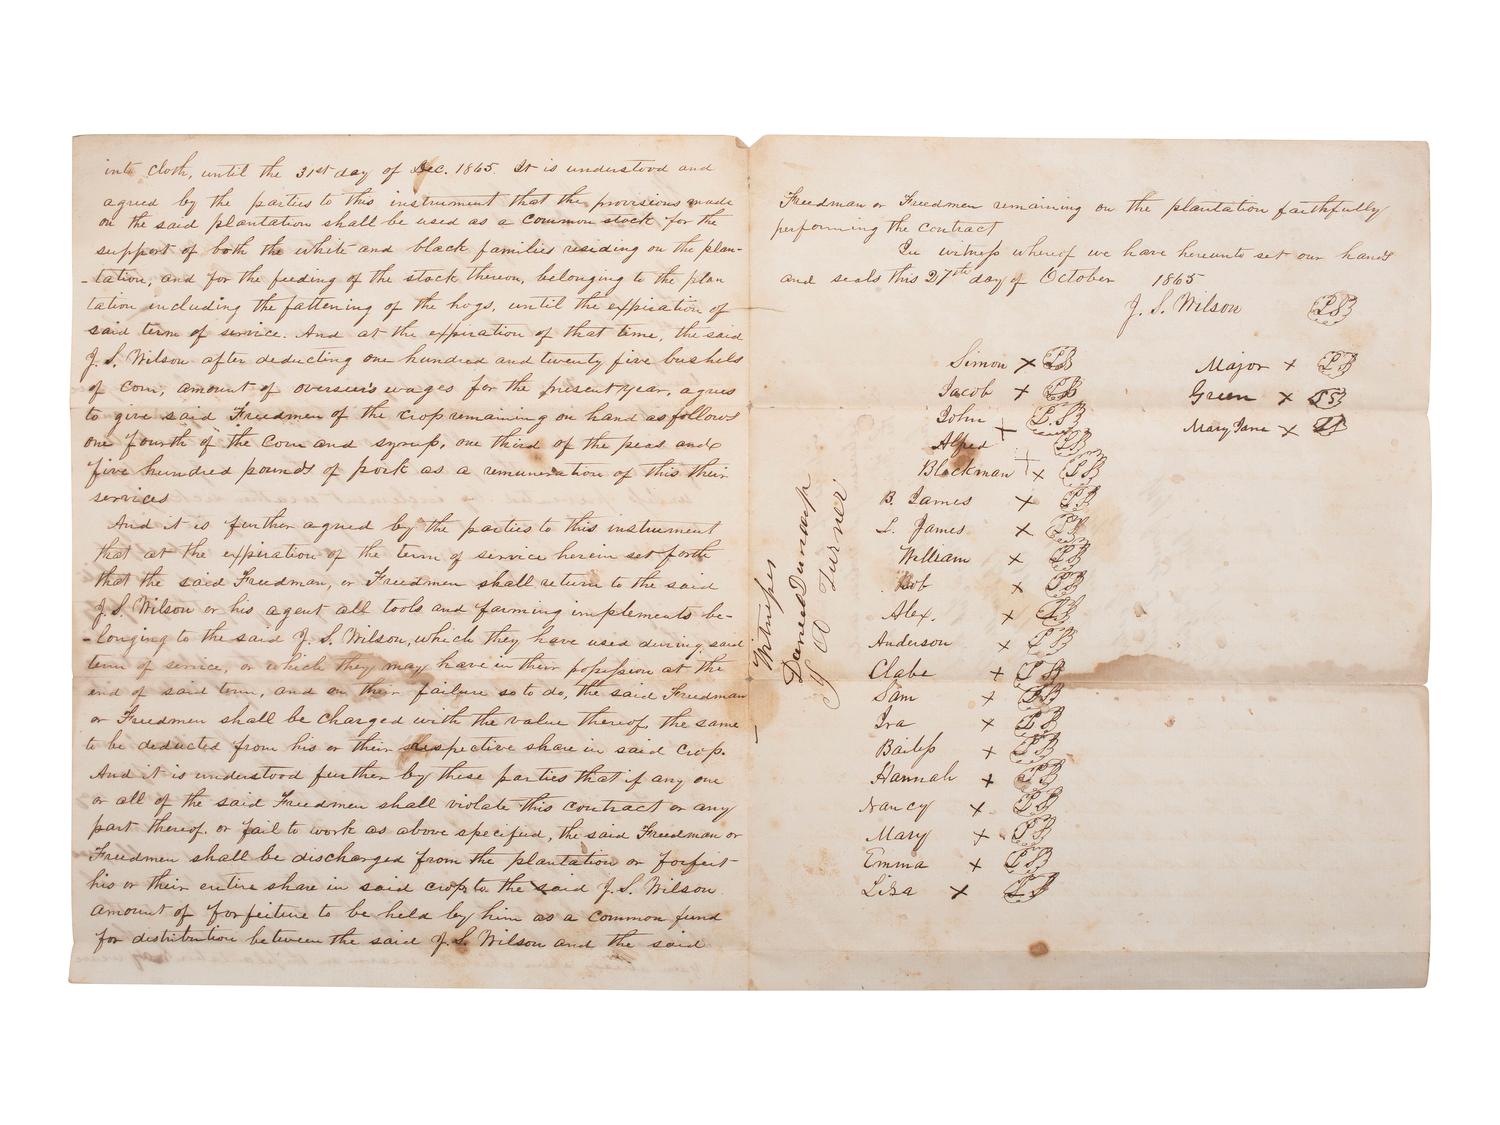 into cloth, until the 31st day of Dec. 1865. It is understood and
agreed by the parties to this instrument that the provisions made
on the said plantation shall be used as a common stock for the
support of both the white and black families residing on the plan-
-tation, and for the feeding of the stock thereon, belonging to the plan
tation including the fattening of the hogs, until the expiration of
said term of service. And at the expiration of that time, the said
J. S. Wilson after deducting one hundred and twenty five bushels
of corn, amount of overseer's wages for the present year, agrees
to give said Freedmen of the crop remaining on hand as follows
one fourth of the corn and syrup, one third of the peas and
five hundred pounds of pork as a remuneration of this their
services
And it is further agreed by the parties to this instrument
that at the expiration of the term of service herein set forth
that the said Freedman, or Freedmen shall return to the said
J. S. Wilson or his agent all tools and farming implements be-
-longing to the said J. S. Wilson, which they have used during said
term of service, or which they may have in their possession at the
end of said term, and on their failure so to do, the said Freedman
or Freedmen shall be charged with the value thereof, the same
to be deducted from his or their respective share in said crop.
And it is understood further by these parties that if any one
or all of the said Freedmen shall violate this contract or any
part thereof, or fail to work as above specified, the said Freedman or
Freedmen shall be discharged from the plantation or forfeit
his or their entire share in said crop to the said J. S. Wilson
amount of forfeiture to be held by him as a common fund
for distribution between the said J. S. Wilson and the said
Freedman or Freedmen remaining on the plantation faithfully
performing the contract
In witness whereof we have hereunto set our hands
and seals this 27th day of October 1865
J. S. Wilson LS
Simon x LS
Jacob x LS
John x LS
Alfred x LS
Blackman x LS
B. James x LS
L. James x LS
William x LS
Bob x LS
Alex. x LS
Anderson x LS
Clabe x LS
Sam x LS
Ira x LS
Bailess x LS
Hannah x LS
Nancy x LS
Mary x LS
Emma x LS
Liza x LS
Major x LS
Green x LS
Mary Jane x LS
Witness
Turner